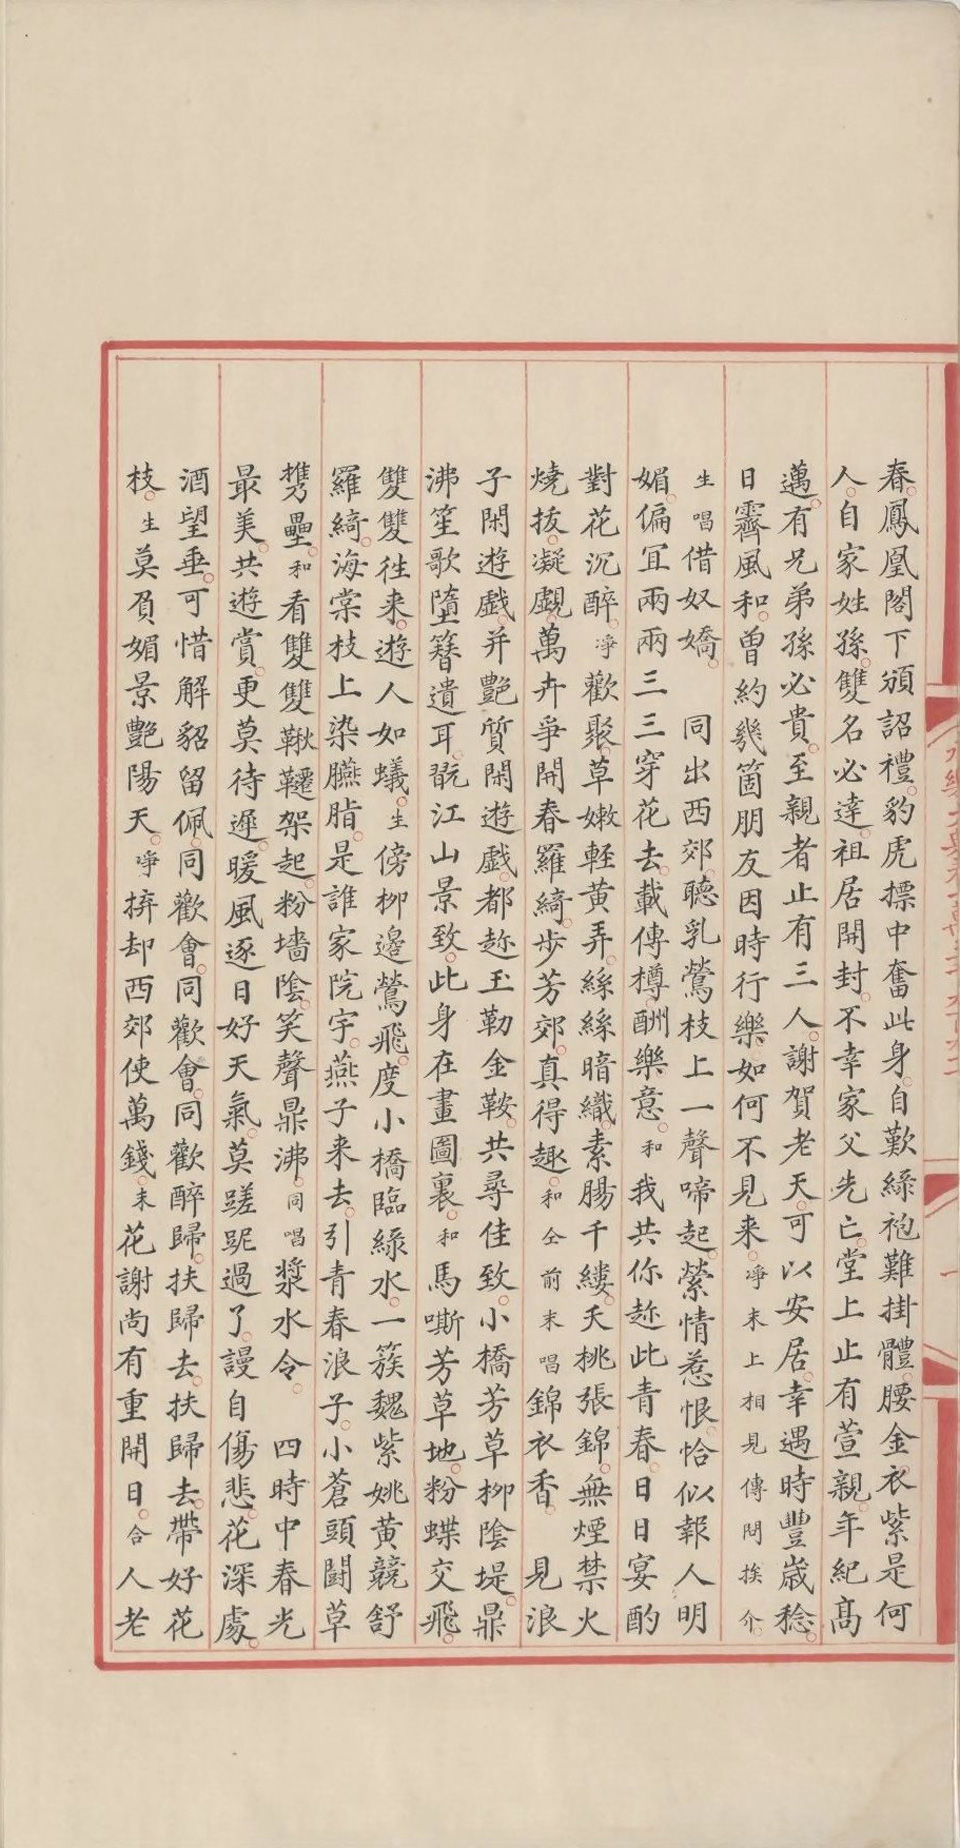 春。鳳凰閣下頒詔禮。豹虎摽中奮此身。自歎綠袍難掛體。腰金衣紫是何
人。自家姓孫。雙名必達。祖居開封。不幸家父先亡。堂上止有萱親。年紀高
邁。有兄弟孫必貴。至親者止有三人。謝賀老天。可以安居。幸遇時豐歲稔。
日霽風和。曾約幾箇朋友因時行樂。如何不見来。淨末上相見傳問挨介。
生唱借奴嬌。 同出西郊。聽乳鶯枝上一聲啼起。縈情惹恨。恰似報人明
媚。偏宜兩兩三三穿花去。載傳樽。酬樂意。和我共你趂此青春。日日宴酌
對花沉醉。淨歡聚。草嫩輕黃弄。絲絲暗織。素腸千縷。夭桃張錦。無煙禁火
燒拔。凝覷。萬卉爭開春羅綺。步芳郊。真得趣。和仝前末唱錦衣香。 見浪
子閑遊戲。并艷質閑遊戲。都趂玉勒金鞍。共尋佳致。小橋芳草柳陰堤。鼎
沸笙歌墮簪遺耳。翫江山景致。此身在畫圖裏。和馬嘶芳草地。粉蝶交飛。
雙雙往来。遊人如蟻。生傍柳邊鶯飛。度小橋臨綠水。一簇魏紫姚黃競舒
羅綺。海棠枝上染臙脂。是誰家院宇。燕子来去。引青春浪子。小蒼頭鬪草
携壘。和看雙雙鞦韆架起。粉墻陰。笑聲鼎沸。同唱漿水令。 四時中春光
最美。共遊賞。更莫待遲。暖風逐日好天氣。莫蹉跎過了。謾自傷悲。花深處。
酒望垂。可惜解貂留佩。同歡會。同歡會。同歡醉歸。扶歸去。扶歸去。帶好花
枝。生莫負媚景艷陽天。淨拚却西郊使萬錢。末花謝尚有重開日。合人老